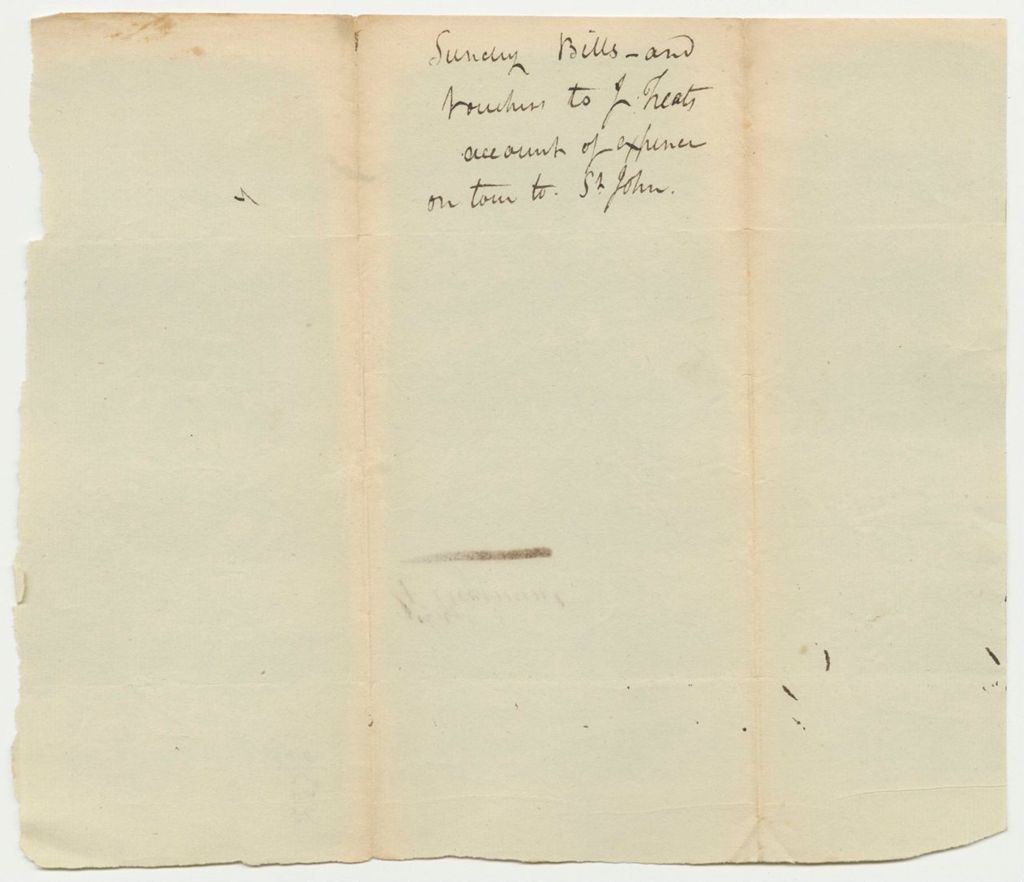 Sundry Bills - and
Vouchers to J. Treats
account of expence
on tour to St John.